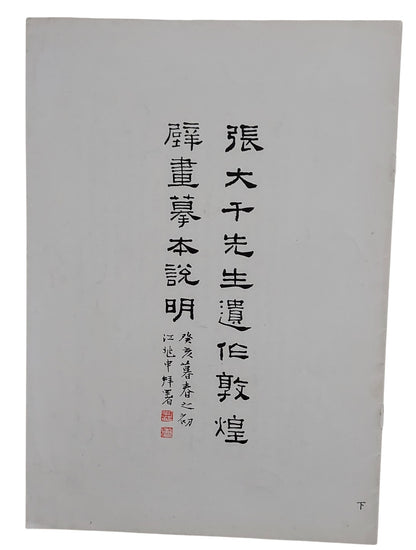 張大千先生遺作敦煌
壁畫摹本說明
癸亥暮春之初
江兆申拜署
下